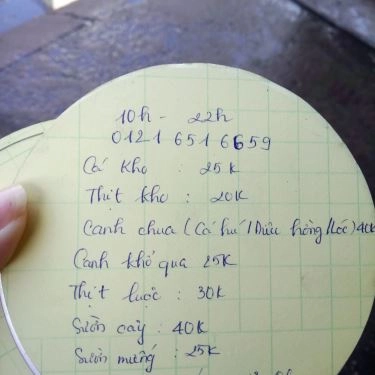 10h - 22h
0121 651 6659
Cá kho : 25K
Thịt kho : 20K
Canh chua (Cá hú / Diêu hồng / Lóc) 40K
Canh khổ qua 25K
Thịt luộc : 30K
Sườn cây : 40K
Sườn miếng : 25K